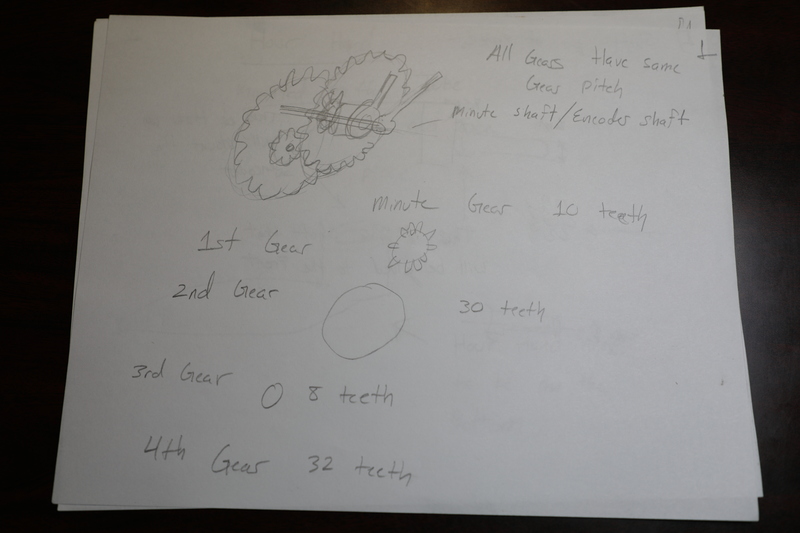 P1
1
All Gears Have same
Gear pitch
minute shaft/Encoder shaft
minute Gear 10 teeth
1st Gear
2nd Gear
30 teeth
3rd Gear
8 teeth
4th Gear 32 teeth